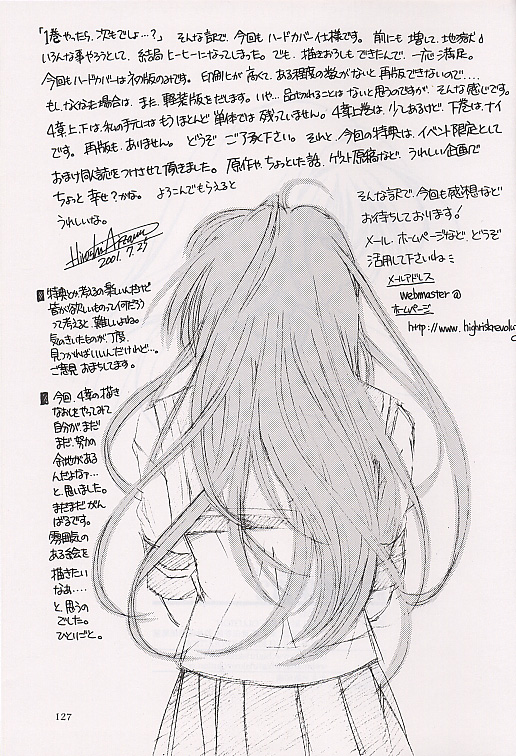 「1巻やったら、次もでしょ…?」 そんな訳で、今回もハードカバー仕様です。前にも増して、地獄♪
いろんな事やろうとして、結局ヒーヒーになってしまった。でも、描きおろしもできたんで、一応満足。
今回もハードカバーは初版のみです。印刷代が高くて、ある程度の数がないと再版できないので‥‥
もし、なくなった場合は、また、軽装版をだします。いや…品切れることはないと思うのですが、そんな感じです。
4章上、下は、私の手元にも、もうほとんど単体では残っていません。4章上巻は、少しあるけど、下巻は、ナイ
です。再版も、ありません。どうぞ ご了承下さい。それと、今回の特典は、イベント限定として
おまけ同人誌をつけさせて頂きました。原作や、ちょっとした話、ゲスト原稿など、うれしい企画で
ちょっと幸せ?かな。よろこんでもらえると
うれしいな。
2001.7.25
そんな訳で、今回も感想など
お待ちしております!
メール、ホームページなど、どうぞ
活用して下さいね
メールアドレス
webmaster@
ホームページ
http://www.highriskrevolu
特典とか考えるの楽しいんだけど
皆が欲しいものって何だろう
って考えると、難しいよね。
気のきいたものが丁度、
見つかればいいんだけれど…。
ご意見おまちしてます。
今回、4章の描き
なおしをやってみて
自分が、まだ
まだ、努力の
余地がある
んだよなァ…
と、思いました。
まだまだがん
ばるです。
雰囲気の
ある絵を
描きたい
なぁ‥‥
と、思うの
でした。
ひとりごと。
127